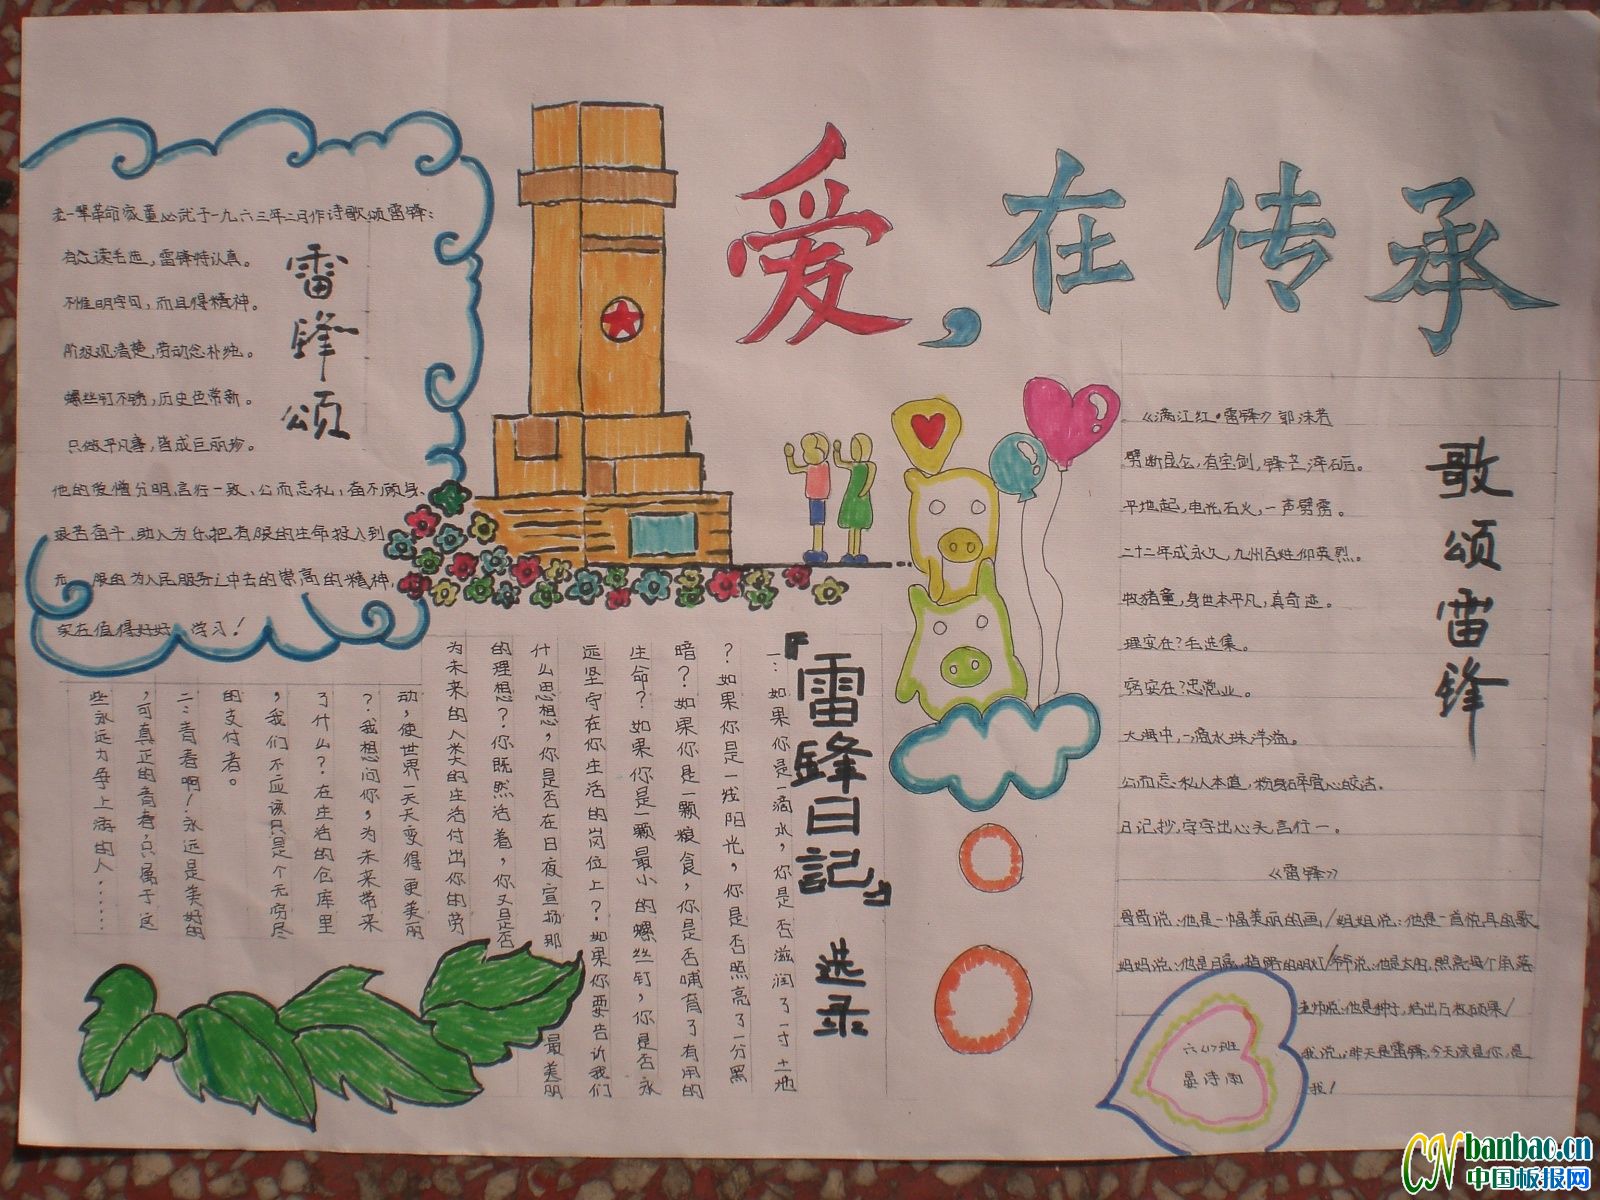 爱,在传承
老一辈革命家董必武于一九六三年二月作诗歌颂雷锋:
有众读毛选,雷锋特认真。
不惟明字句,而且得精神。
阶级观清楚,劳动念朴纯。
螺丝钉不锈,历史色常新。
只做平凡事,皆成巨丽珍。
他的爱憎分明,言行一致,公而忘私,奋不顾身,
艰苦奋斗,助人为乐,把有限的生命投入到
无限的为人民服务之中去的崇高的精神,
实在值得好好学习!
雷锋颂
『雷鋒日記』选录
一:如果你是一滴水,你是否滋润了一寸土地
?如果你是一线阳光,你是否照亮了一分黑
暗?如果你是一颗粮食,你是否哺育了有用的
生命?如果你是一颗最小的螺丝钉,你是否永
远坚守在你生活的岗位上?如果你要告诉我们
什么思想,你是否在日夜宣扬那最美丽
的理想?你既然活着,你又是否
为未来的人类的生活付出你的劳
动,使世界一天天变得更美丽
?我想问你,为未来带来
了什么?在生活的仓库里
,我们不应该只是个无穷尽
的支付者。
二:青春啊!永远是美好的
,可真正的青春,只属于这
些永远力争上游的人......
歌颂雷锋
《满江红·雷锋》郭沫若
劈断昆仑,有宝剑,锋芒淬砺。
平地起,电光石火,一声劈雳。
二十二年成永久,九州百姓仰英烈。
牧猪童,身世本平凡,真奇迹。
理实在?毛选集。
穷实在?忠党业。
大海中,一滴水珠洋溢。
公而忘私人本值,粉身碎骨心皎洁。
日记抄,字字出心夫,言行一。
《雷锋》
哥哥说:他是一幅美丽的画/姐姐说:他是一首悦耳的歌
妈妈说:他是月亮,指路的明灯/爷爷说:他是太阳,照亮每个角落
老师说:他是种子,结出万枚硕果/
我说:昨天是雷锋,今天该是你,是
我!
六(1)班
晏诗雨
CN banbao.cn
中国板报网